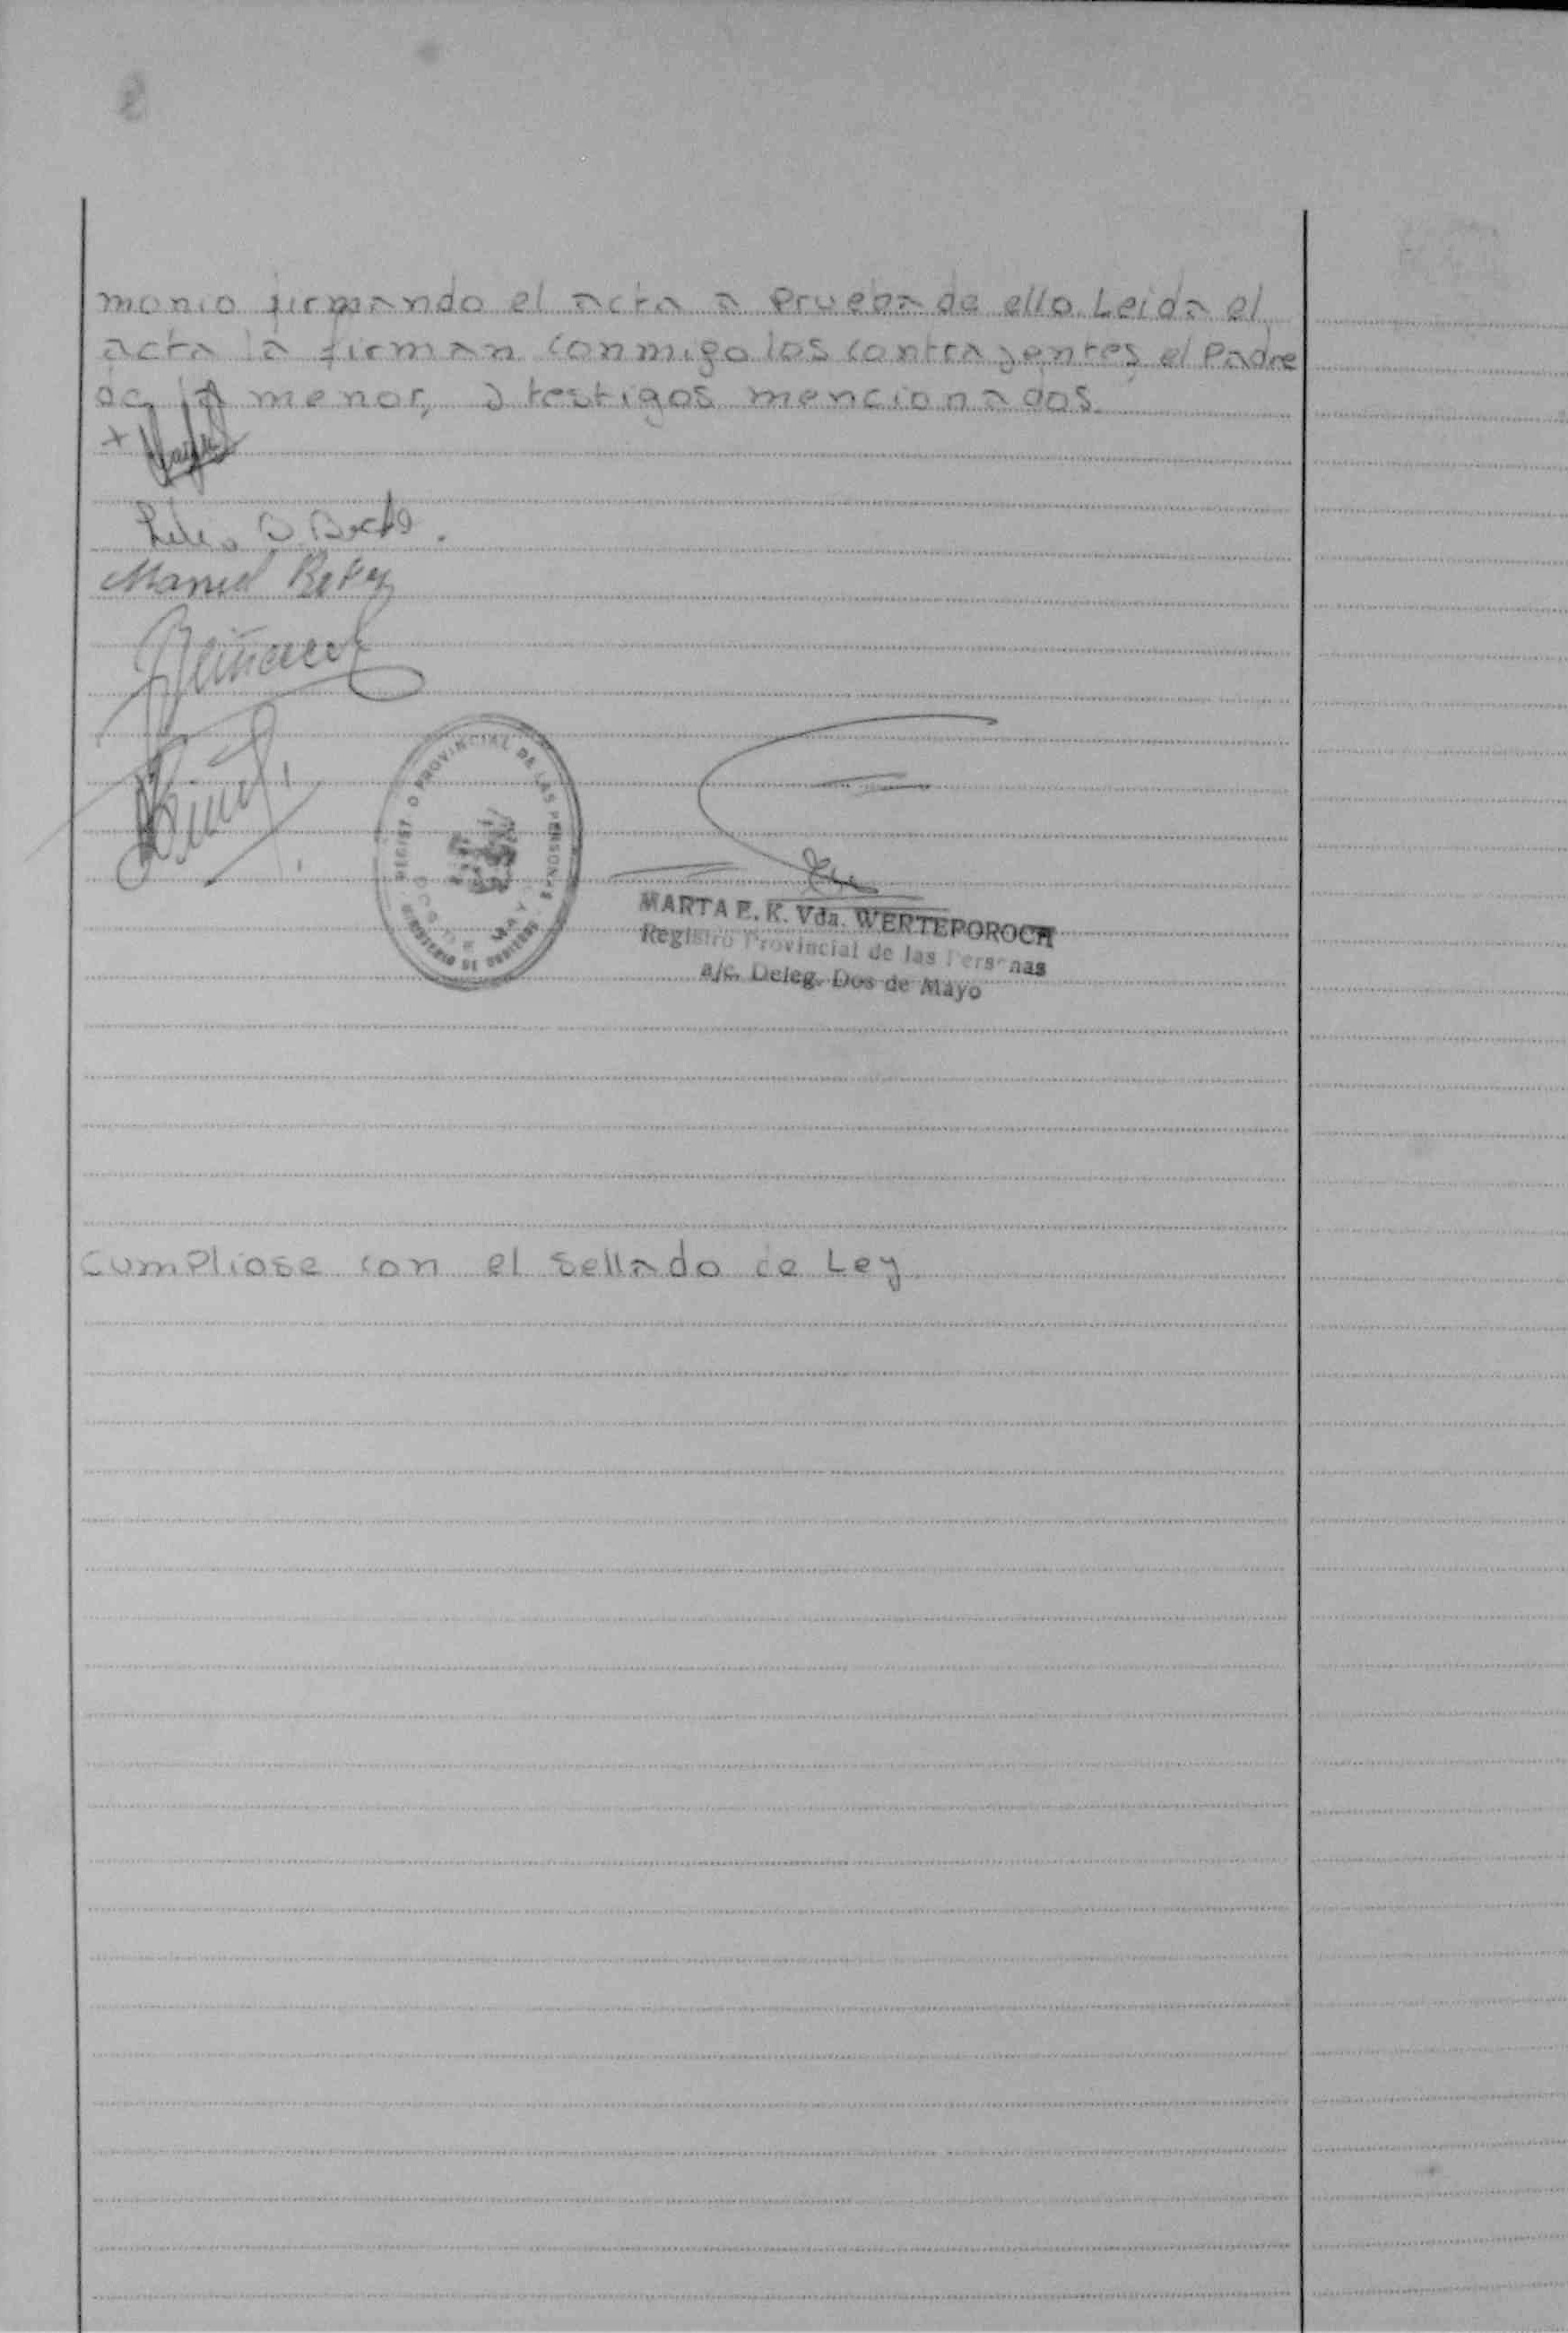 monio firmando el acta a Prueba de ello. Leida el
acta la firman conmigo los contrayentes, el Padre
de la menor, y testigos mencionados.
+
Manuel
REGISTRO PROVINCIAL DE LAS PERSONAS
MINISTERIO DE GOBIERNO
MARTA E. K. Vda. WERTEPOROCH
Registro Provincial de las Personas
a/c. Deleg. Dos de Mayo
Cumpliose con el sellado de Ley